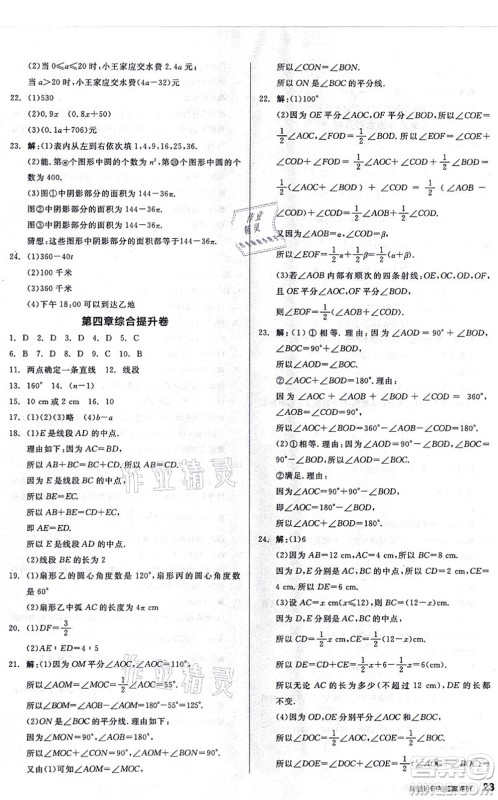 (2)当 0≤a≤20 时,小王家应交水费 2.4a 元;
当 a>20 时,小王家应交水费(4a-32)元
22. (1)530
(2)0.9x (0.8x+50)
(3)(0.1a+706)元
23. 解:(1)表内从左到右依次填 1,4,9,16,25,36.
(2)能. 第ⓝ个图形中圆的个数为 n²,第⑳个图形中圆的个数为 400.
(3)图①中阴影部分的面积为 144-36π.
图②中阴影部分的面积为 144-36π.
图③中阴影部分的面积为 144-36π.
猜想:这些图形中阴影部分的面积都等于 144-36π.
24. (1)360-40t
(2)100 千米
(3)360 千米
(4)下午 18:00 可以到达乙地
第四章综合提升卷
1. D 2. D 3. D 4. D 5. C
6. B 7. D 8. D 9. D 10. D
11. 两点确定一条直线 12. 线段
13. 160° 14. (n-1)
15. 10 cm 或 2 cm 16. 20°
17. (1)(2)(3)略 (4)b-a
18. (1)E 是线段 AD 的中点.
理由如下:因为 AC=BD,
所以 AB+BC=BC+CD,
所以 AB=CD.
因为 E 是线段 BC 的中点,
所以 BE=EC,
所以 AB+BE=CD+EC,
即 AE=ED.
所以 E 是线段 AD 的中点.
(2)线段 BE 的长为 2
19. (1)扇形乙的圆心角度数是 120°,扇形丙的圆心角度数是 60°
(2)扇形甲中弧 AC 的长度为 2π
20. (1)DF=3/2
(2)AE:ED=4:5
21. 解:(1)因为 OM 平分∠AOC,∠AOC=110°,
所以∠AOM=∠MOC=1/2∠AOC=55°,
所以∠BOM=∠AOB-∠AOM=180°-55°=125°.
(2)ON 是∠BOC 的平分线.理由如下:
因为∠MON=90°,
所以∠MOC+∠CON=90°,
∠AOM+∠BON=180°-90°=90°.
又因为∠AOM=∠MOC,
所以∠CON=∠BON.
所以 ON 是∠BOC 的平分线.
22. 解:(1)100°
(2)因为 OE 平分∠AOC,OF 平分∠BOD,所以∠COE=1/2∠AOC,∠FOD=1/2∠BOD,所以∠EOF=∠COE+∠COD+∠FOD=1/2∠AOC+1/2∠BOD+∠COD=1/2(∠AOC+∠BOD)+∠COD=1/2(∠AOB-∠COD)+∠COD=1/2(∠AOB+∠COD).
又因为∠AOB=α,∠COD=β,
所以∠EOF=1/2α+1/2β=1/2(α+β).
(3)若∠AOB 内部有顺次的四条射线:OE,OC,OD,OF,且 OE 平分∠AOC,OF 平分∠BOD,
则∠EOF=1/2(∠AOB+∠COD).
23. 解:(1)①相等. 理由:因为∠AOC=90°+∠AOD,∠BOD=90°+∠AOD,
所以∠AOC=∠BOD.
②∠AOB+∠COD=180°. 理由:
因为∠AOC+∠AOB+∠BOD+∠COD=360°,
∠AOC=∠BOD=90°,
所以∠AOB+∠COD=180°.
(2)①相等. 理由:因为∠AOD=90°-∠BOD,∠BOC=90°-∠BOD,所以∠AOD=∠BOC.
②满足. 理由:
因为∠AOC=90°=∠AOB-∠BOC,
∠BOD=90°=∠COD-∠BOC,
所以∠AOB+∠COD=180°.
24. 解:(1)6
(2)因为 AB=12 cm,AC=4 cm,所以 BC=8 cm.
因为 D,E 分别是 AC,BC 的中点,所以 CD=2 cm,CE=4 cm,所以 DE=6 cm.
(3)设 AC=x cm(x≤12),则 BC=(12-x)cm.
因为 D,E 分别是 AC,BC 的中点,
所以 CD=1/2x cm,CE=1/2(12-x)cm,
所以 DE=CD+CE=1/2x+6-1/2x=6(cm),
所以无论 AC 的长为多少(不超过 12 cm),DE 的长都不变.
(4)因为 OD,OE 分别平分∠AOC 和∠BOC,
所以∠DOC=1/2∠AOC,∠COE=1/2∠BOC,
所以∠DOE=∠DOC+∠COE=1/2(∠AOC+
作业精灵
作业精灵
作业精灵
23